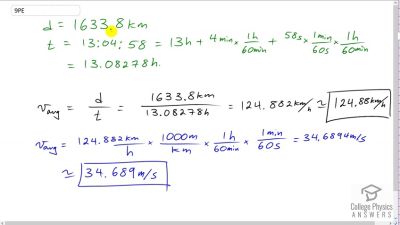 9PE
d = 1633.8 km
t = 13:04:58 = 13h + 4min × 1h/60min + 58s × 1min/60s × 1h/60min
= 13.08278h.
v_avg = d/t = 1633.8km/13.08278h = 124.882km/h ≃ 124.88km/h
v_avg = 124.882km/h × 1000m/km × 1h/60min × 1min/60s = 34.6894m/s
≃ 34.689m/s
College Physics
ANSWERS